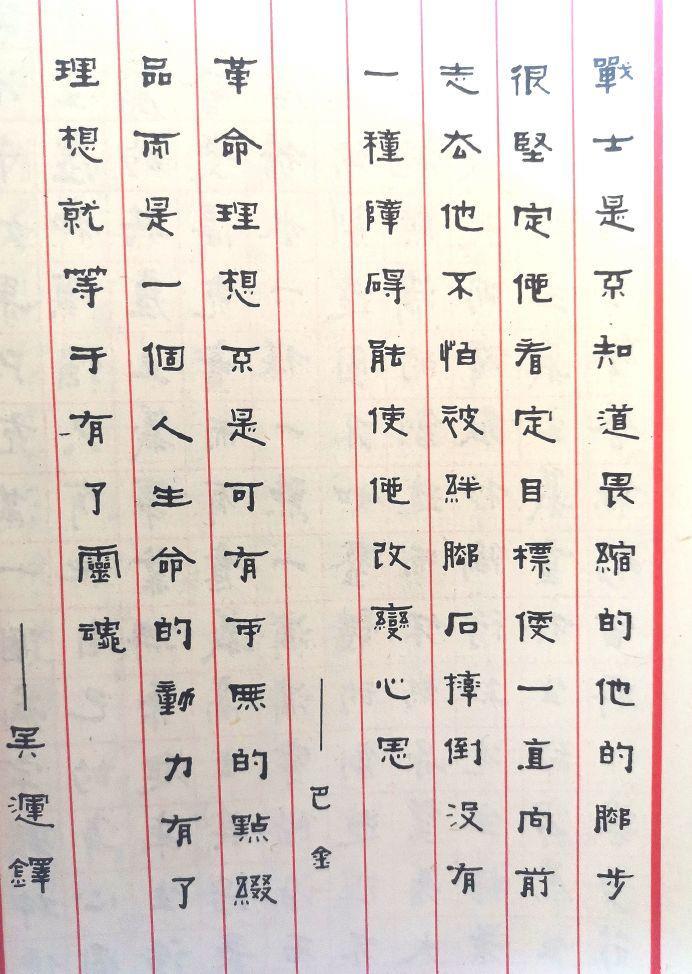 戰士是不知道畏縮的他的腳步
很堅定他看定目標便一直向前
走去他不怕被絆腳石摔倒沒有
一種障碍能使他改變心思
——巴金
革命理想不是可有可無的點綴
品而是一個人生命的動力有了
理想就等于有了靈魂
——吳運鐸